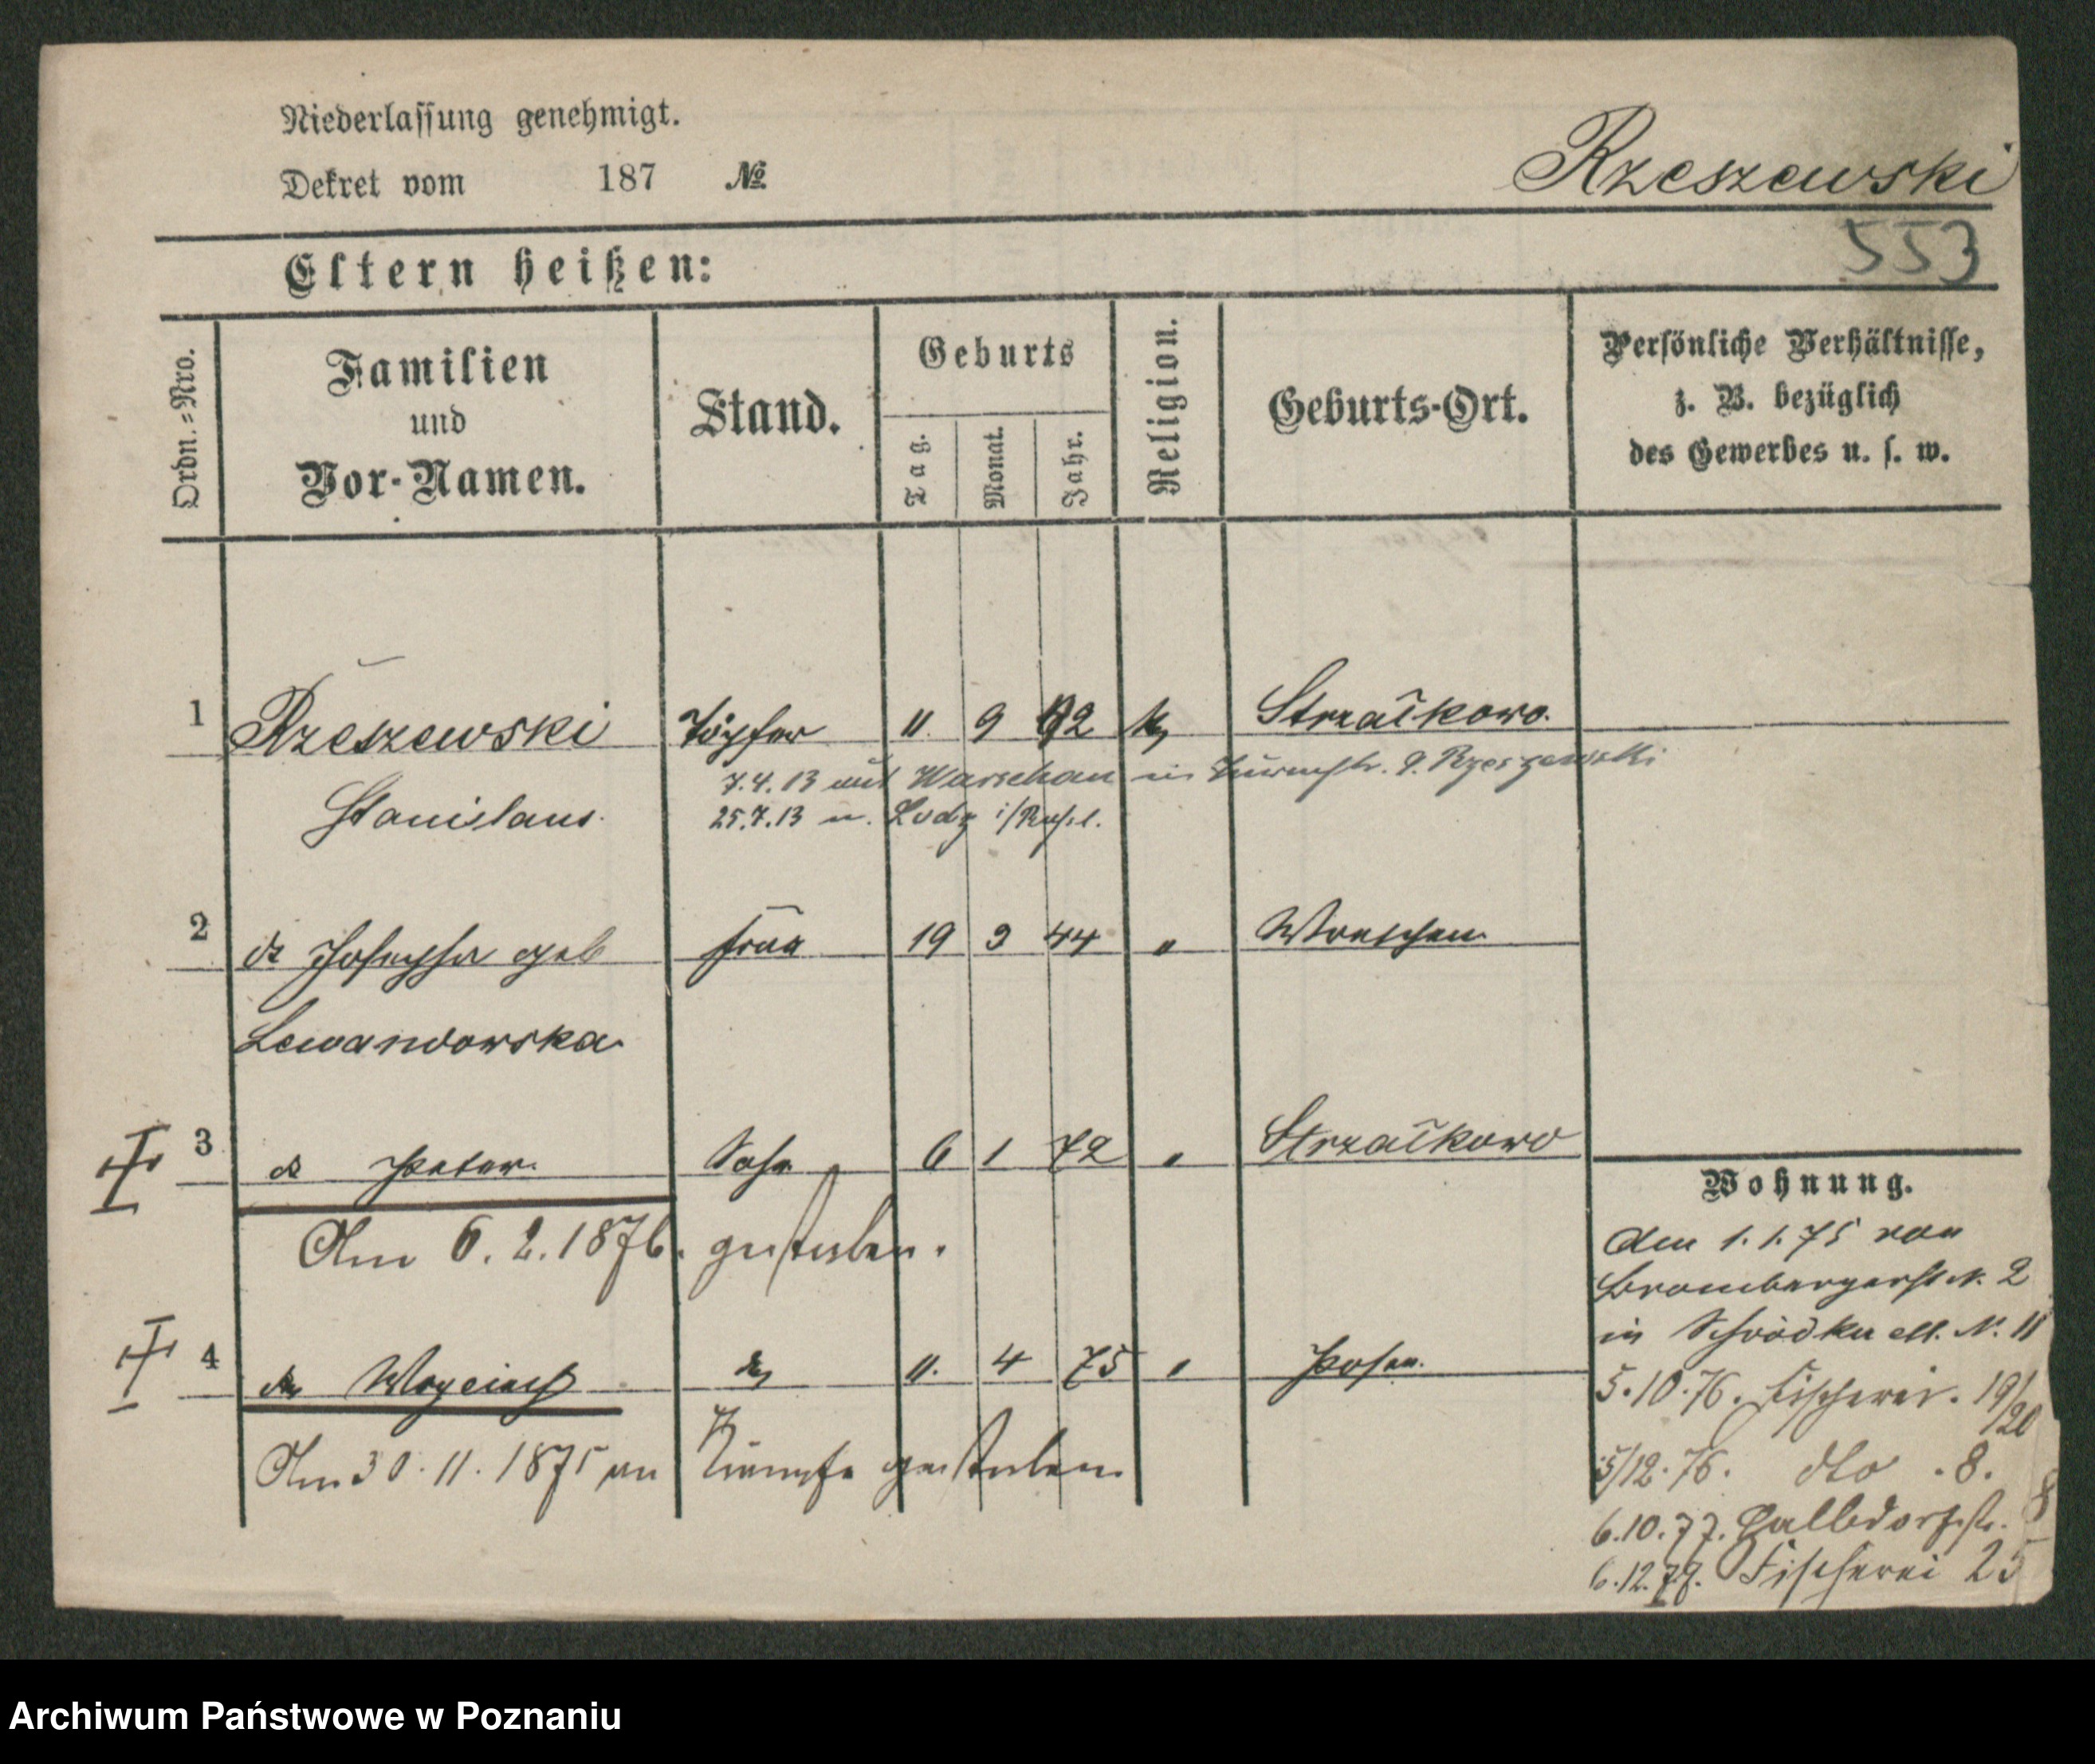 Niederlassung genehmigt.
Dekret vom 187 №
Rzeszewski
553
Eltern heißen:
Ordn.=Nro.
Familien
und
Vor-Namen.
Stand.
Geburts
Tag.
Monat.
Jahr.
Religion.
Geburts-Ort.
Persönliche Verhältnisse,
z. B. bezüglich
des Gewerbes u. s. w.
1 Rzeszewski Töpfer 11. 9 42 Strzałkowo.
7.4.13 aus Warschau in Turmstr. 9. Rzeszewski
Stanislaus. 25.7.13 n. Lodz i/Russl.
2 do Josepha geb Frau 19 3 44 " Wreschen
Lewandowska
3 do Peter. Sohn 6 1 72 " Strzałkowo
Am 6.2.1876. gestorben.
4 do Woyciech do 11. 4 75 " Posen.
Am 30.11.1875 an gestorben
Wohnung.
Am 1.1.75 von
Brombergerst N. 2
in Schrodka N. 11
5.10.76. Fischerei. 19/20
5/12.76. dto .8.
6.10.77. Halbdorfstr. 8
6.12.79. Fischerei 25
Archiwum Państwowe w Poznaniu